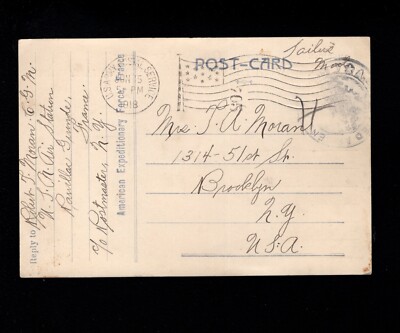 POST-CARD
Sailors
Mail
1918
Mrs. T. A. Moran
1314-51st St.
Brooklyn
N.Y.
U.S.A.
Reply to Robert T. Moran C.G.M.
U.S.A Air Station
Pauillac Gironde,
France.
c/o Postmasters N.Y.
American Expeditionary Force, France